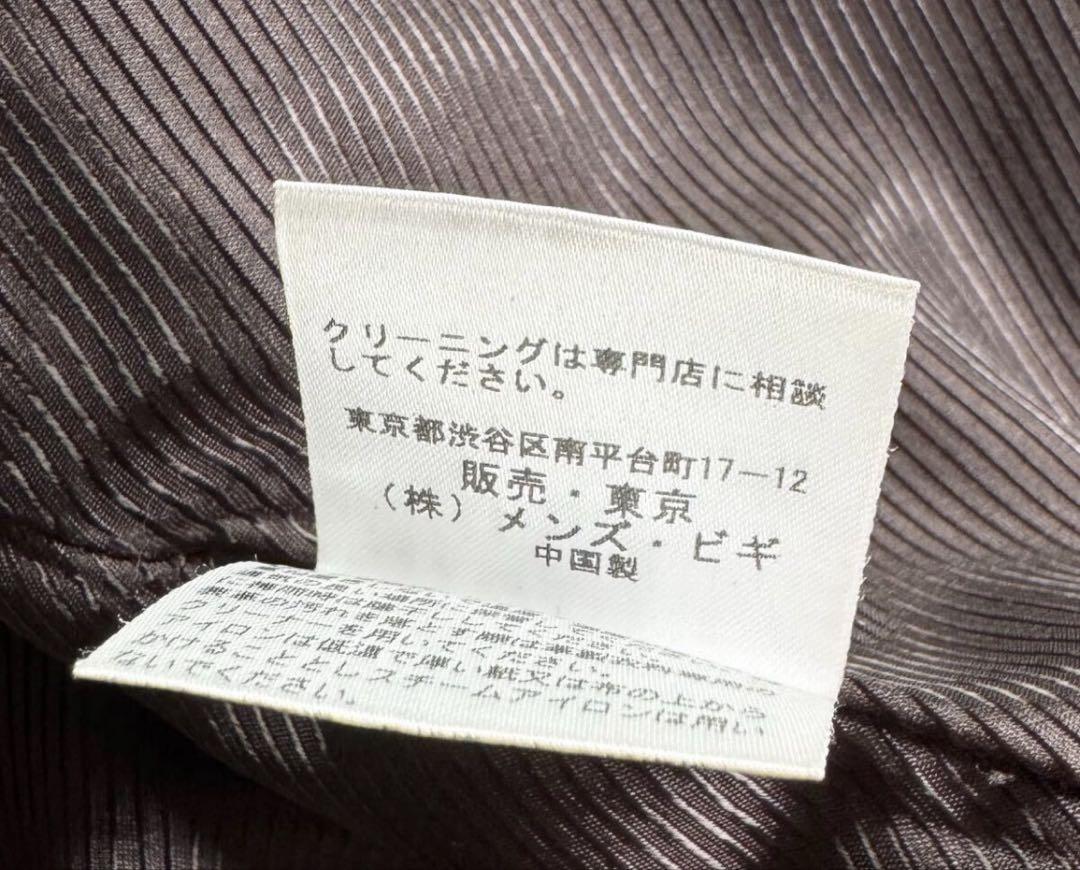 クリーニングは専門店に相談
してください。
東京都渋谷区南平台町17-12
販売・東京
(株) メンズ・ビギ
中国製
クリーナーを用いてください。
アイロンは低温で薄い紙又は布の上から
かけることとしスチームアイロンは用い
ないでください。